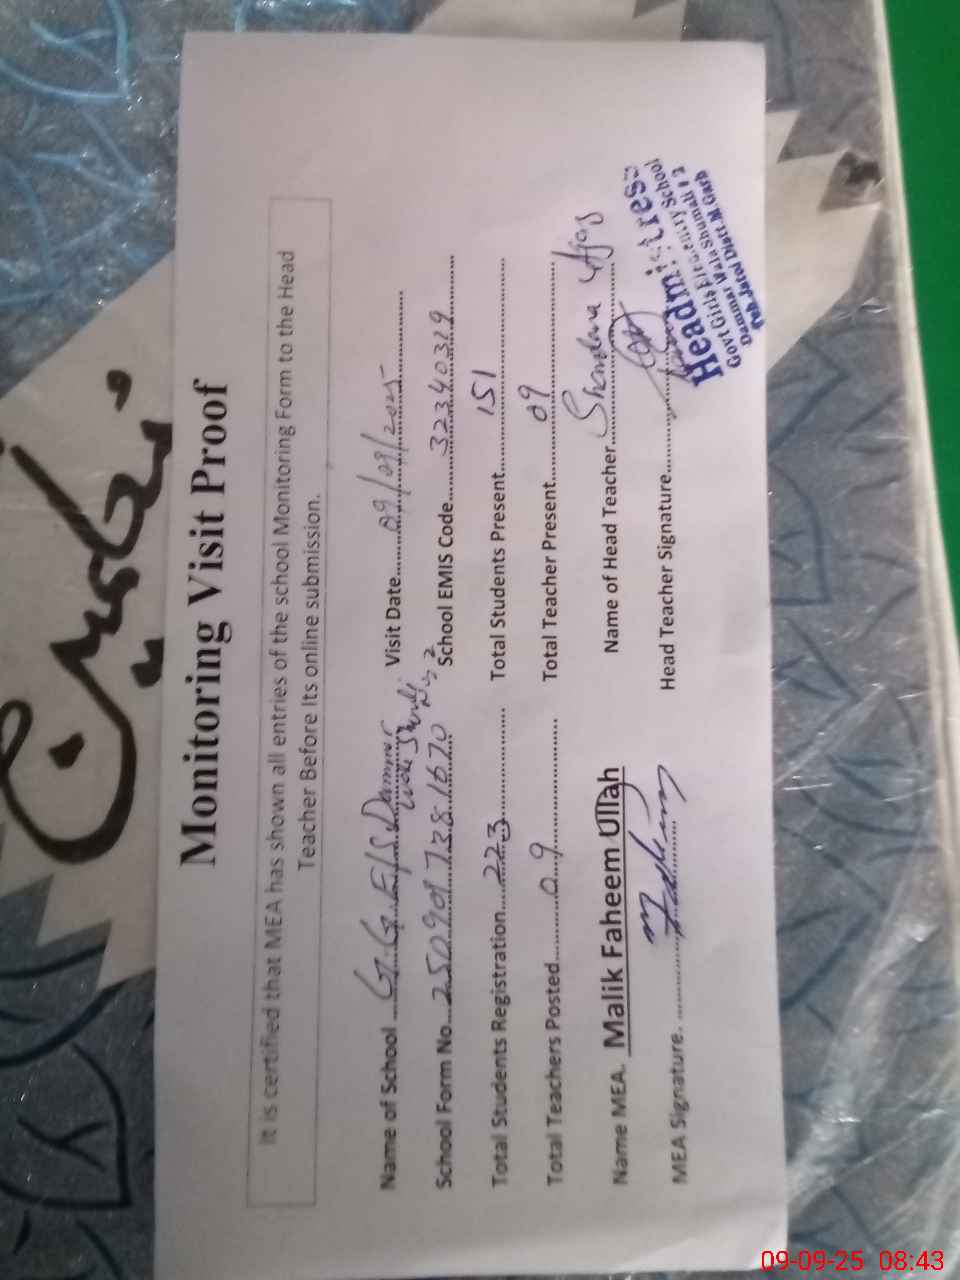 Monitoring Visit Proof
It is certified that MEA has shown all entries of the school Monitoring Form to the Head
Teacher Before Its online submission.
Name of School ....G.G.E/S Dammar Visit Date....09/09/2025
Wala Shumali No 2
School Form No....25090973816 70 School EMIS Code....32340319
Total Students Registration....223.... Total Students Present....151
Total Teachers Posted....09.... Total Teacher Present....09
Name MEA. Malik Faheem Ullah Name of Head Teacher....
MEA Signature. .... Head Teacher Signature....
Headmistress
Govt Girls Elementry School
Dammar Wala Shumali # 2
Teh.Jatoi Distt.M.Garh
09-09-25 08:43